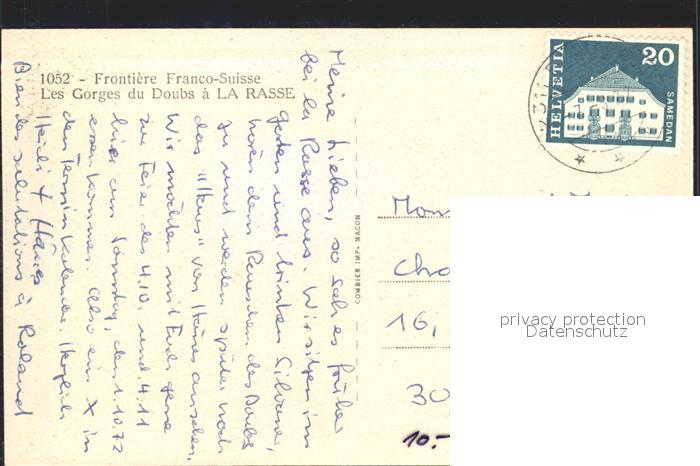 1052 - Frontière Franco-Suisse
Les Gorges du Doubs à LA RASSE
Meine Lieben, so sah es früher
bei la Rasse aus. Wir sitzen im
Garten und trinken Silvaner,
hören dem Rauschen des Doubs
zu und werden später noch
das "Haus" von Heinz ansehen.
Wir möchten mit Euch gerne
zur Feier des 4.10. und 4.11
hier am Samstag, den 1.10.72
essen kommen. Also ein X in
den Terminkalender. Herzlich
Heidi +
Bien des salutations à Roland
COMBIER IMP. MACON
HELVETIA
20
SAMEDAN
Mon
Cha
16,
30
10.-
privacy protection
Datenschutz